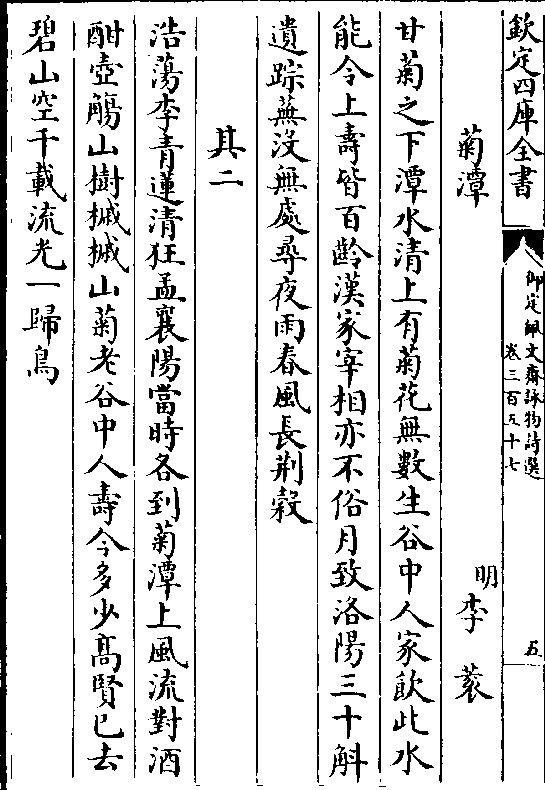 欽定四庫全書
御定佩文齋詠物詩選
卷三百五十七
五
菊潭
明
李蓘
甘菊之下潭水清上有菊花無數生谷中人家飲此水
能令上壽皆百齡漢家宰相亦不俗月致洛陽三十斛
遺踪蕪没無處尋夜雨春風長荆榖
其二
浩蕩李青蓮清狂孟襄陽當時各到菊潭上風流對酒
酣壺觴山樹槭槭山菊老谷中人壽今多少髙賢已去
碧山空千載流光一歸鳥